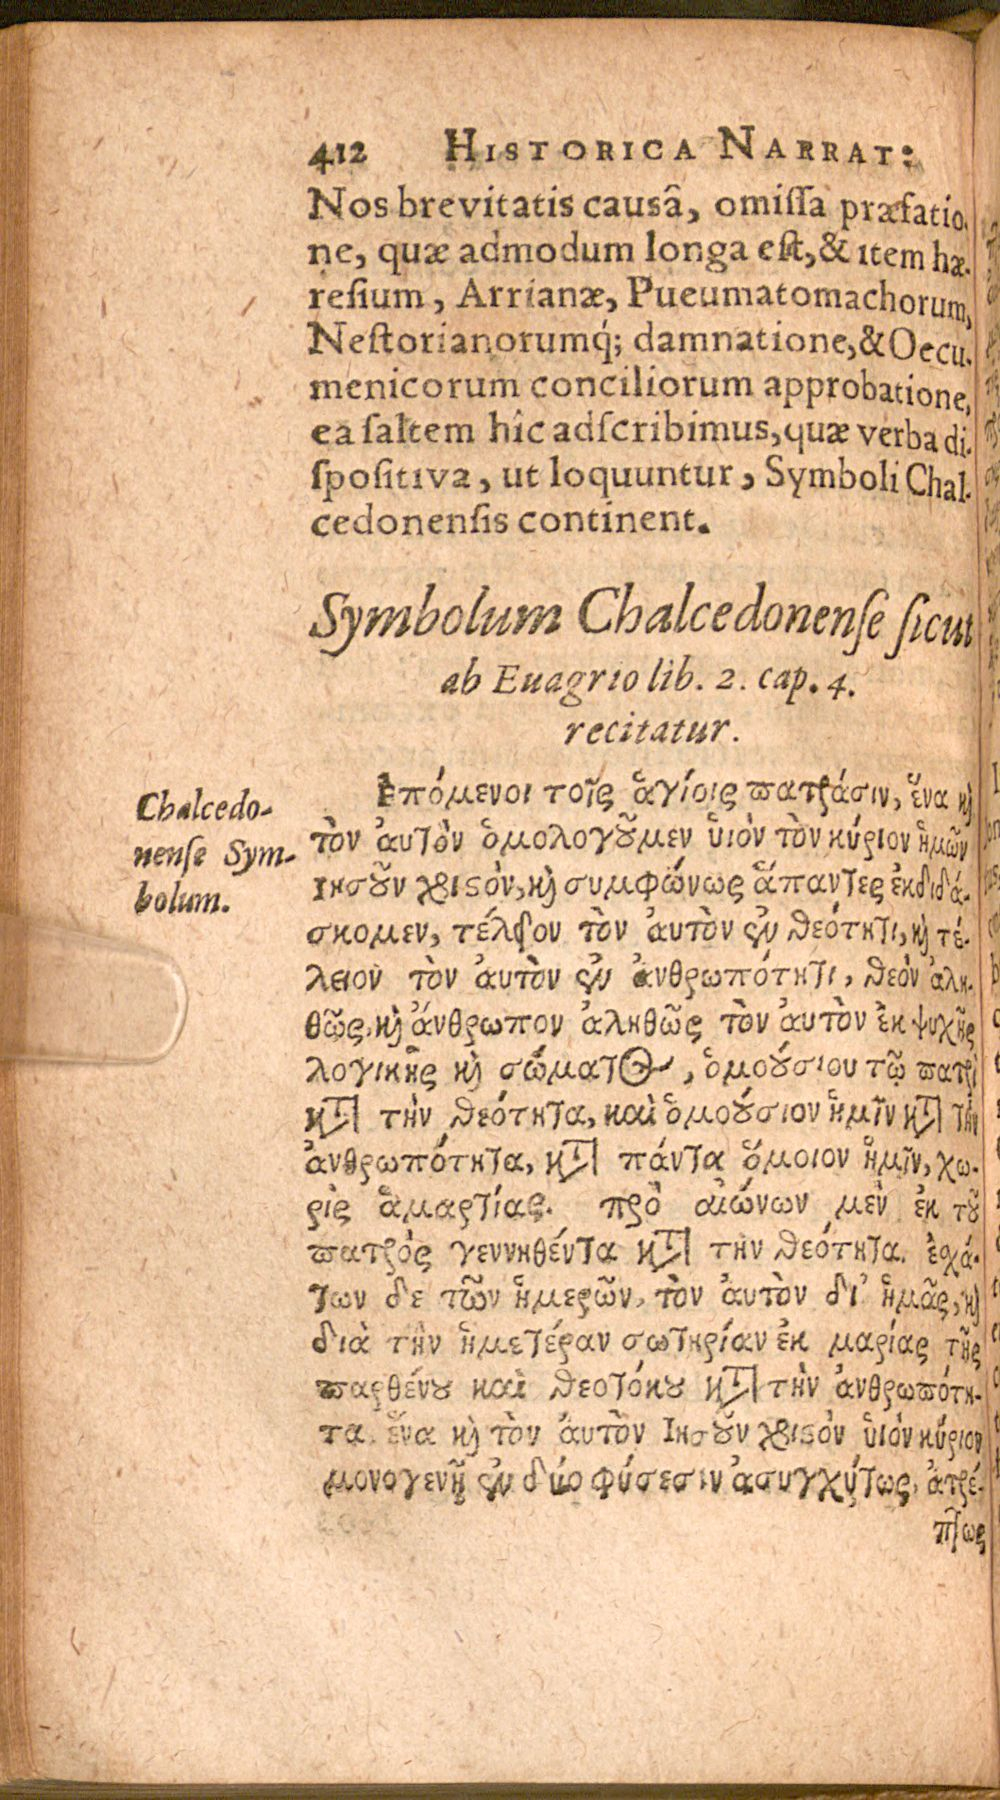 412 HISTORICA NARRAT:
Nos brevitatis causâ, omissa præfatio-
ne, quæ admodum longa est, & item hæ-
resium, Arrianæ, Pueumatomachorum,
Nestorianorumq́; damnatione, & Oecu-
menicorum conciliorum approbatione,
ea saltem hîc adscribimus, quæ verba di-
spositiva, ut loquuntur, Symboli Chal-
cedonensis continent.
Symbolum Chalcedonense sicut
ab Euagrio lib. 2. cap. 4.
recitatur.
Chalcedo-
nense Sym-
bolum.
Ἑπόμενοι τοῖς ἁγίοις πατράσιν, ἕνα καὶ
τὸν ἀυτὸν ὁμολογοῦμεν ὑιὸν τὸν κύριον ἡμῶν
Ιησοῦν χριστὸν, καὶ συμφώνως ἅπαντες ἐκδιδά-
σκομεν, τέλειον τὸν ἀυτὸν ἐν θεότητι, καὶ τέ-
λειον τὸν ἀυτὸν ἐν ἀνθρωπότητι, θεὸν ἀλη-
θῶς, καὶ ἄνθρωπον ἀληθῶς τὸν ἀυτὸν ἐκ ψυχῆς
λογικῆς καὶ σώματος, ὁμούσιου τῷ πατρὶ
κατὰ τὴν θεότητα, καὶ ὁμούσιον ἡμῖν κατὰ τὴν
ἀνθρωπότητα, κατὰ πάντα ὅμοιον ἡμῖν, χω-
ρὶς ἁμαρτίας. πρὸ αἰώνων μὲν ἐκ τοῦ
πατρὸς γεννηθέντα κατὰ τὴν θεότητα. ἐσχά-
των δε τῶν ἡμερῶν, τὸν ἀυτὸν δι᾽ ἡμᾶς, καὶ
διὰ τὴν ἡμετέραν σωτηρίαν ἐκ μαρίας τῆς
παρθένου καὶ θεοτόκου κατὰ τὴν ἀνθρωπότη-
τα ἕνα καὶ τὸν ἀυτὸν Ιησοῦν χριστὸν ὑιὸν κύριον
μονογενῆ ἐν δύο φύσεσιν ἀσυγχύτως, ἀτρέ-
πτως